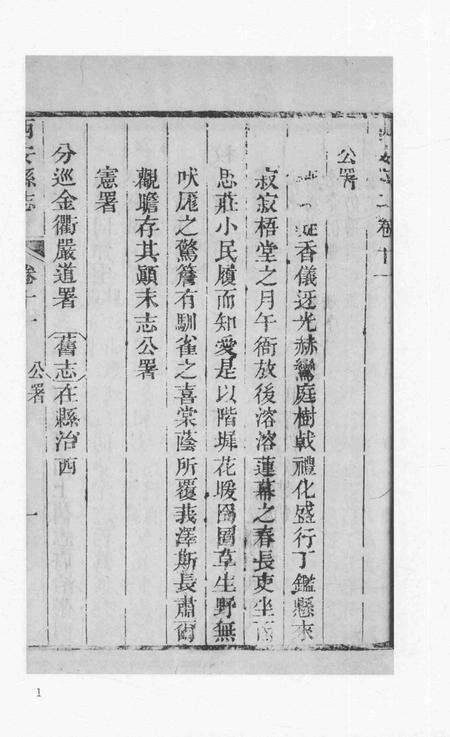 卷十一
公署
香儀迓光赫鸞庭樹戟禮化盛行丁鑑懸來
寂寂梧堂之月午衙放後溶溶蓮幕之春長吏坐而
思莊小民履而知愛是以階墀花暖囹圄草生野無
吠厖之驚簷有馴雀之喜棠蔭所覆茂澤斯長肅爾
觀瞻存其顛末志公署
憲署
分巡金衢嚴道署 舊志在縣治西
西安縣志 卷十一 公署 一
1